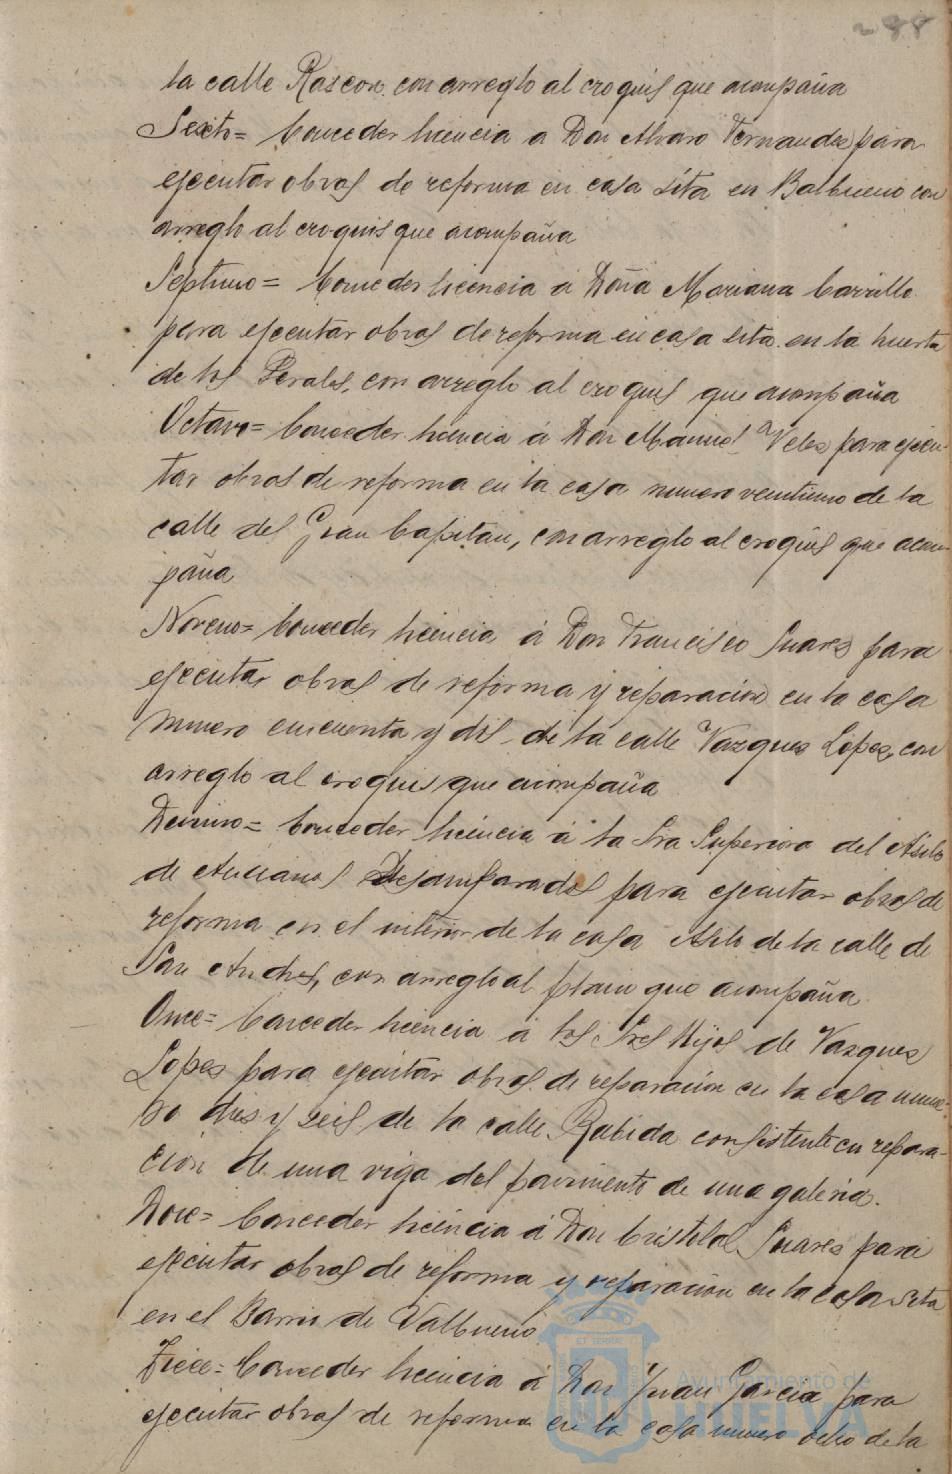 288
la calle Rascon con arreglo al croquis que acompaña
Sexto= Conceder licencia a Don Alvaro Fernandez para
ejecutar obras de reforma en casa sita en Balbueno con
arreglo al croquis que acompaña
Septimo= Conceder licencia á Doña Mariana Carrillo
para ejecutar obras de reforma en casa sita en la huerta
de los Perales, con arreglo al croquis que acompaña
Octavo= Conceder licencia á Don Manuel Velez para ejecu-
tar obras de reforma en la casa numero veintiuno de la
calle del Gran Capitan, con arreglo al croquis que acom-
paña
Noveno= Conceder licencia á Don Francisco Suarez para
ejecutar obras de reforma y reparacion en la casa
numero cincuenta y dos de la calle Vazquez Lopez, con
arreglo al croquis que acompaña
Decimo= Conceder licencia á la Sra Superiora del Asilo
de Ancianos Desamparados para ejecutar obras de
reforma en el interior de la casa Asilo de la calle de
San Andres, con arreglo al plano que acompaña
Once= Conceder licencia á los Sres Hijos de Vazquez
Lopez para ejecutar obras de reparacion en la casa nume-
ro dies y seis de la calle Rabida consistente en repara-
cion de una viga del pavimento de una galeria.
Doce= Conceder licencia á Don Cristobal Suarez para
ejecutar obras de reforma y reparacion en la casa sita
en el Barrio de Valbueno
Trece= Conceder licencia á Don Juan Garcia para
ejecutar obras de reforma en la casa numero ocho de la
Ayuntamiento de
HUELVA